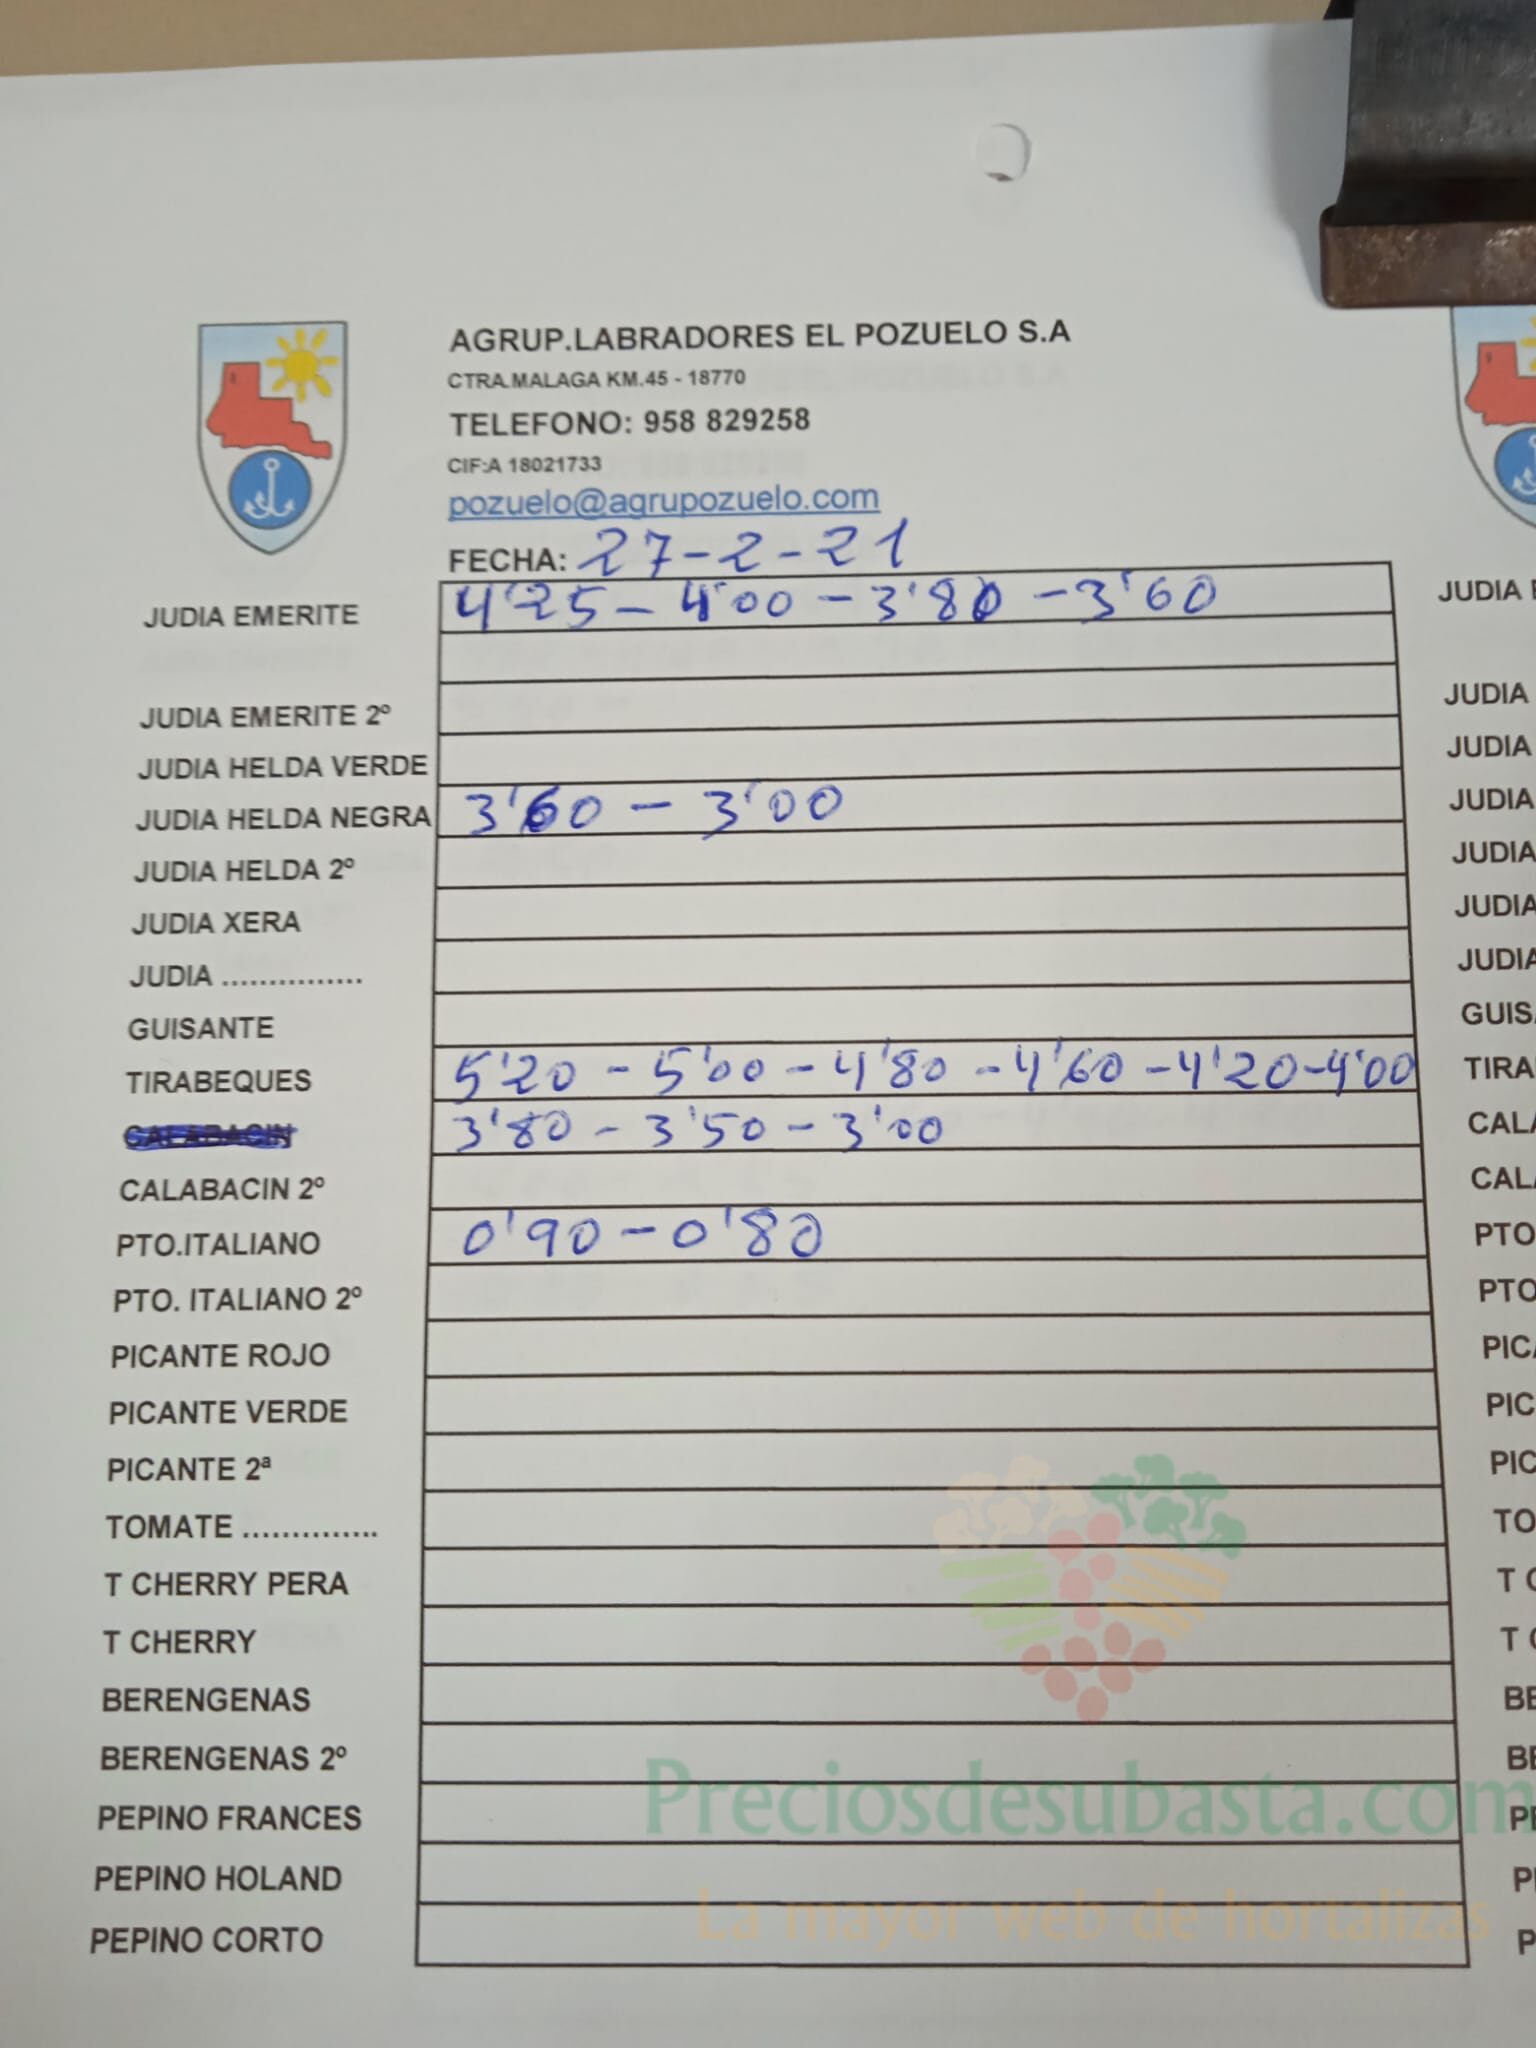 AGRUP.LABRADORES EL POZUELO S.A
CTRA.MALAGA KM.45 - 18770
TELEFONO: 958 829258
CIF:A 18021733
pozuelo@agrupozuelo.com
FECHA: 27-2-21
JUDIA EMERITE 4'25 - 4'00 - 3'80 - 3'60 JUDIA
JUDIA EMERITE 2º JUDIA
JUDIA HELDA VERDE JUDIA
JUDIA HELDA NEGRA 3'60 - 3'00 JUDIA
JUDIA HELDA 2º JUDIA
JUDIA XERA JUDIA
JUDIA ............... JUDIA
GUISANTE
TIRABEQUES 5'20 - 5'00 - 4'80 - 4'60 - 4'20 - 4'00
CALABACIN 3'80 - 3'50 - 3'00
CALABACIN 2º
PTO.ITALIANO 0'90 - 0'80 PTO
PTO. ITALIANO 2º PTO
PICANTE ROJO
PICANTE VERDE
PICANTE 2ª
TOMATE ..............
T CHERRY PERA
T CHERRY
BERENGENAS
BERENGENAS 2º
Preciosdesubasta.com
PEPINO FRANCES
PEPINO HOLAND
La mayor web de hortalizas
PEPINO CORTO